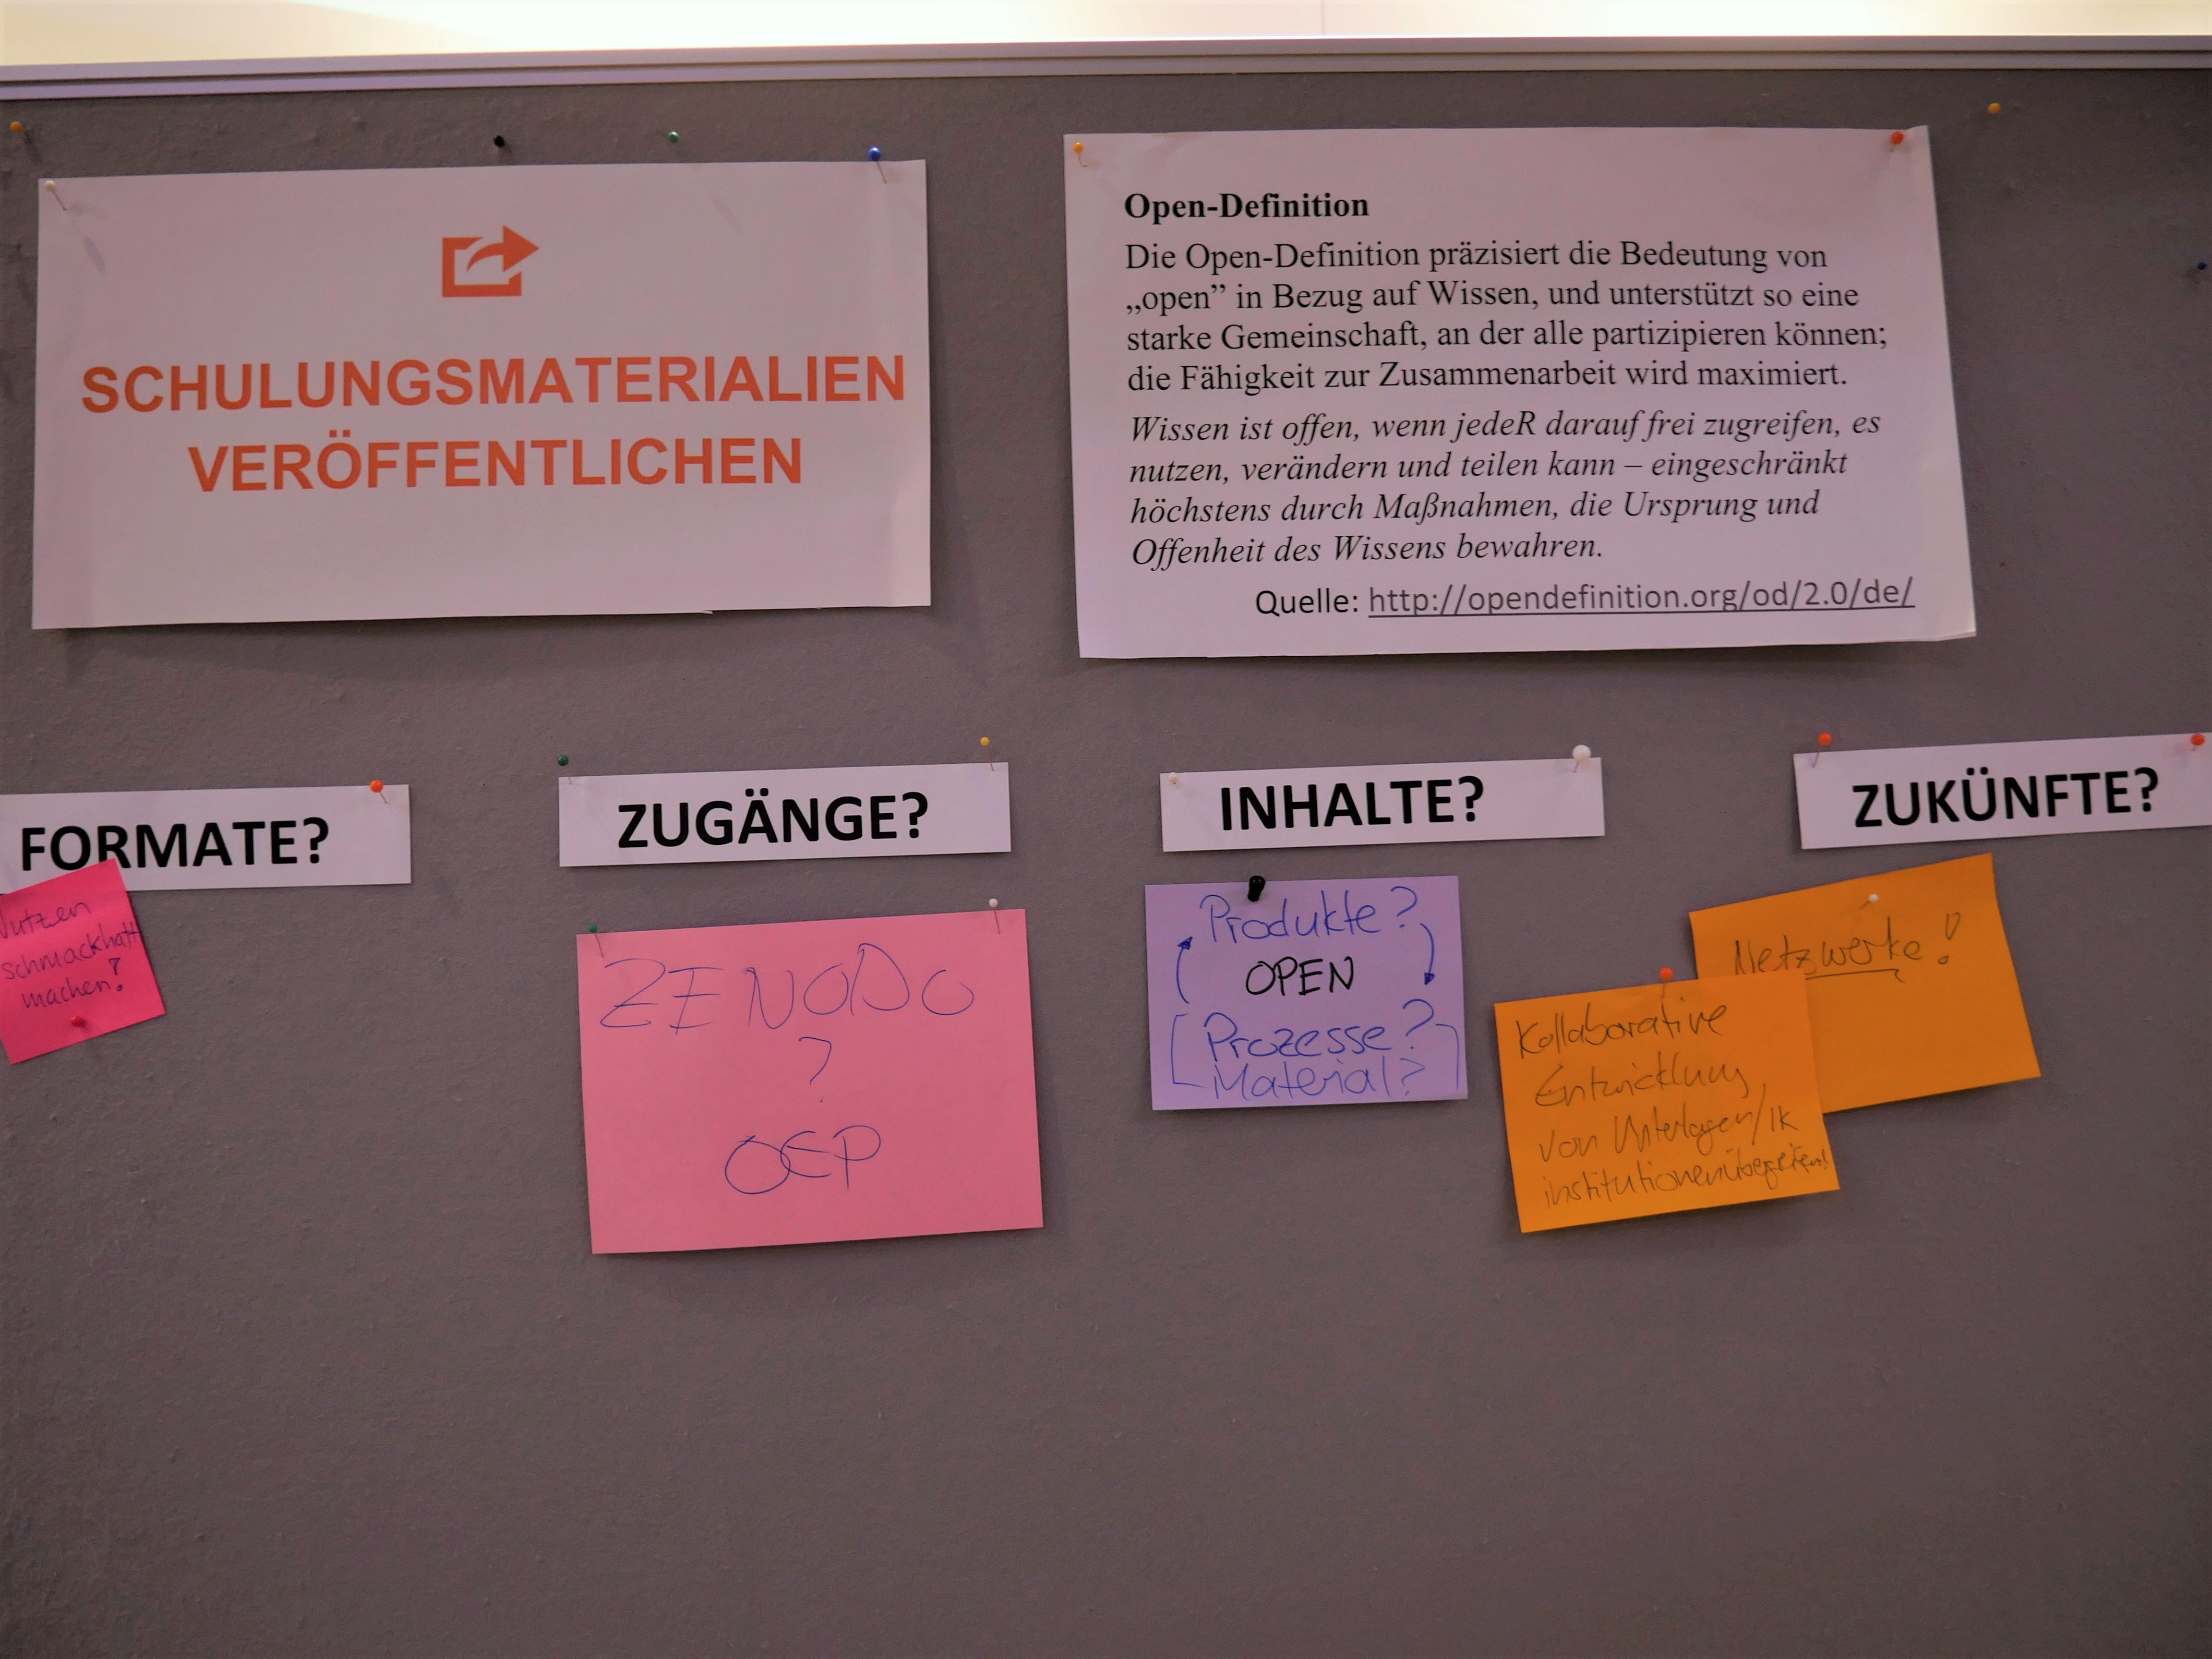 SCHULUNGSMATERIALIEN
VERÖFFENTLICHEN
Open-Definition
Die Open-Definition präzisiert die Bedeutung von
„open” in Bezug auf Wissen, und unterstützt so eine
starke Gemeinschaft, an der alle partizipieren können;
die Fähigkeit zur Zusammenarbeit wird maximiert.
Wissen ist offen, wenn jedeR darauf frei zugreifen, es
nutzen, verändern und teilen kann – eingeschränkt
höchstens durch Maßnahmen, die Ursprung und
Offenheit des Wissens bewahren.
Quelle: http://opendefinition.org/od/2.0/de/
FORMATE?
Nutzen
schmackhaft
machen!
ZUGÄNGE?
ZENODO
?
OEP
INHALTE?
Produkte?
OPEN
Prozesse?
Material?
ZUKÜNFTE?
Netzwerke!
Kollaborative
Entwicklung
von Unterlagen/IK
institutionenübergreifend